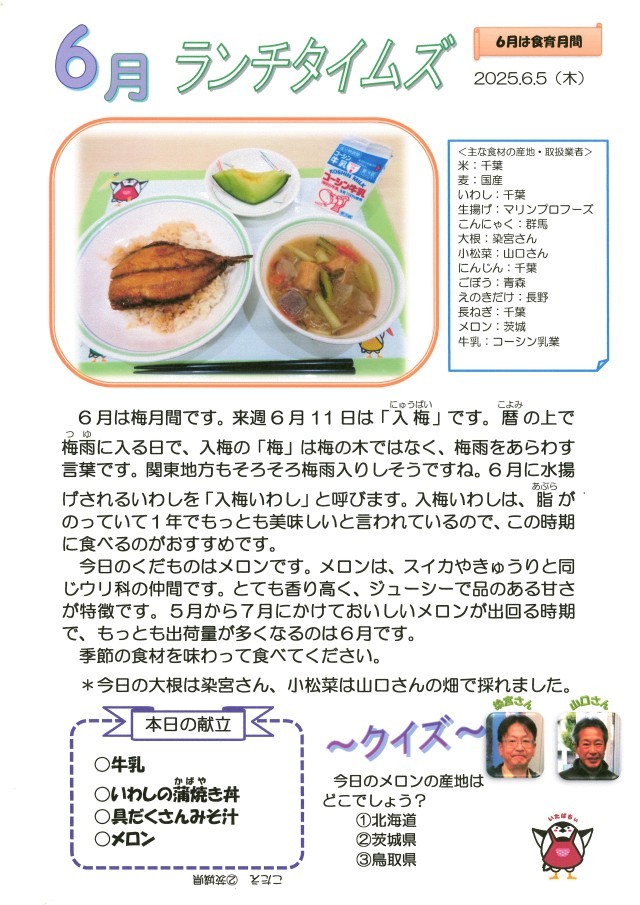 6月 ランチタイムズ
6月は食育月間
2025.6.5（木）
コーシン牛乳
＜主な食材の産地・取扱業者＞
米：千葉
麦：国産
いわし：千葉
生揚げ：マリンプロフーズ
こんにゃく：群馬
大根：染宮さん
小松菜：山口さん
にんじん：千葉
ごぼう：青森
えのきだけ：長野
長ねぎ：千葉
メロン：茨城
牛乳：コーシン乳業
にゅうばい こよみ
6月は梅月間です。来週6月11日は「入梅」です。暦の上で
つゆ
梅雨に入る日で、入梅の「梅」は梅の木ではなく、梅雨をあらわす
言葉です。関東地方もそろそろ梅雨入りしそうですね。6月に水揚
あぶら
げされるいわしを「入梅いわし」と呼びます。入梅いわしは、脂が
のっていて1年でもっとも美味しいと言われているので、この時期
に食べるのがおすすめです。
今日のくだものはメロンです。メロンは、スイカやきゅうりと同
じウリ科の仲間です。とても香り高く、ジューシーで品のある甘さ
が特徴です。5月から7月にかけておいしいメロンが出回る時期
で、もっとも出荷量が多くなるのは6月です。
季節の食材を味わって食べてください。
＊今日の大根は染宮さん、小松菜は山口さんの畑で採れました。
本日の献立
○牛乳
かばや
○いわしの蒲焼き丼
○具だくさんみそ汁
○メロン
～クイズ～
今日のメロンの産地は
どこでしょう？
①北海道
②茨城県
③鳥取県
染宮さん
山口さん
いたばるぃ
こたえ ②茨城県